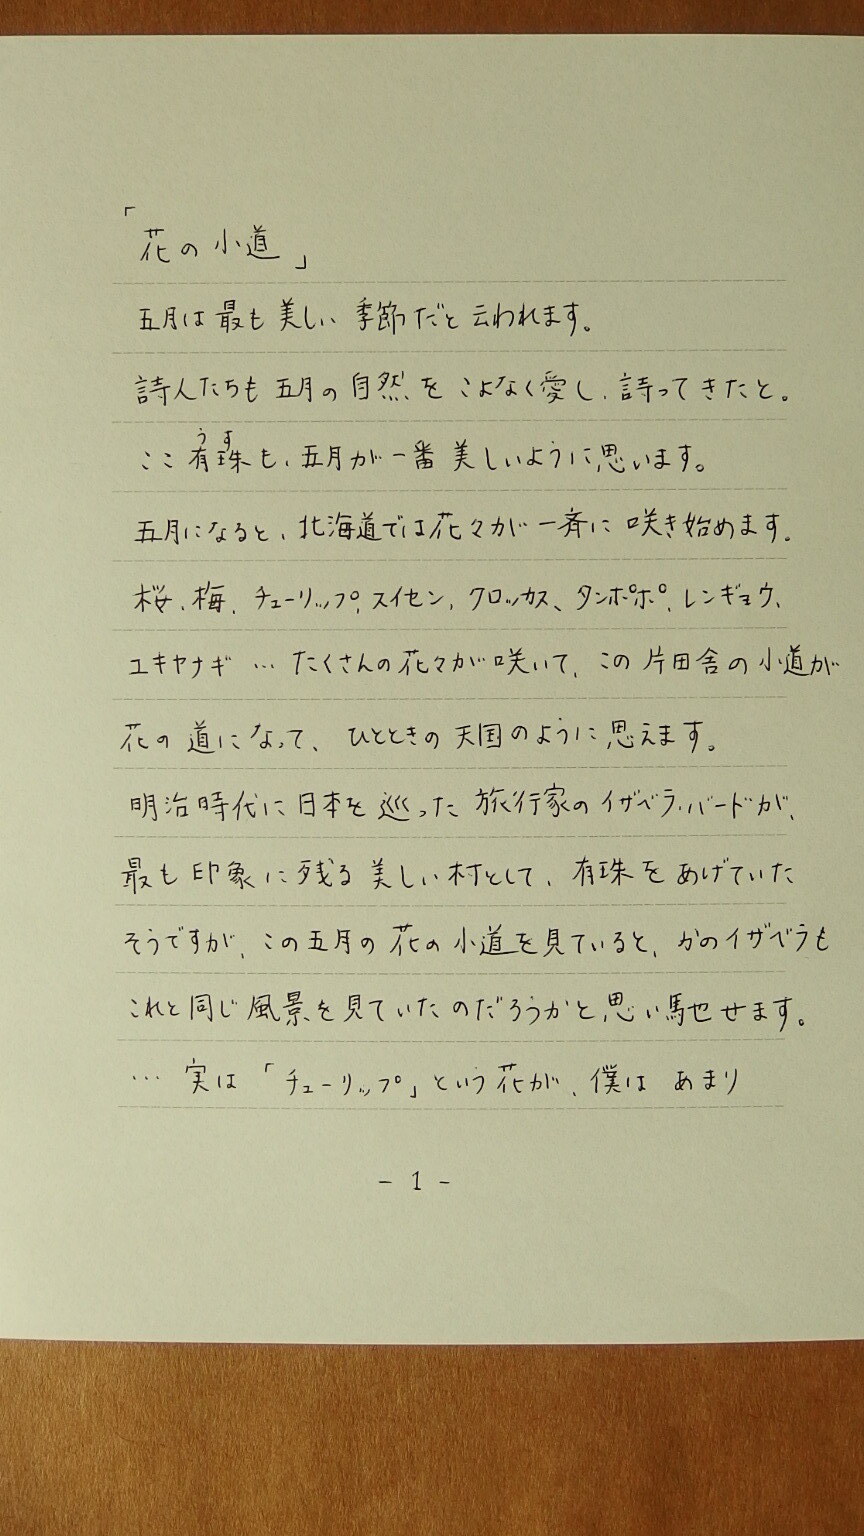 「花の小道」
五月は最も美しい季節だと云われます。
詩人たちも五月の自然をこよなく愛し、詩ってきたと。
うす
ここ有珠も、五月が一番美しいように思います。
五月になると、北海道では花々が一斉に咲き始めます。
桜、梅、チューリップ、スイセン、クロッカス、タンポポ、レンギョウ、
ユキヤナギ…たくさんの花々が咲いて、この片田舎の小道が
花の道になって、ひとときの天国のように思えます。
明治時代に日本を巡った旅行家のイザベラ・バードが、
最も印象に残る美しい村として、有珠をあげていた
そうですが、この五月の花の小道を見ていると、かのイザベラも
これと同じ風景を見ていたのだろうかと思い馳せます。
…実は「チューリップ」という花が、僕はあまり
- 1 -